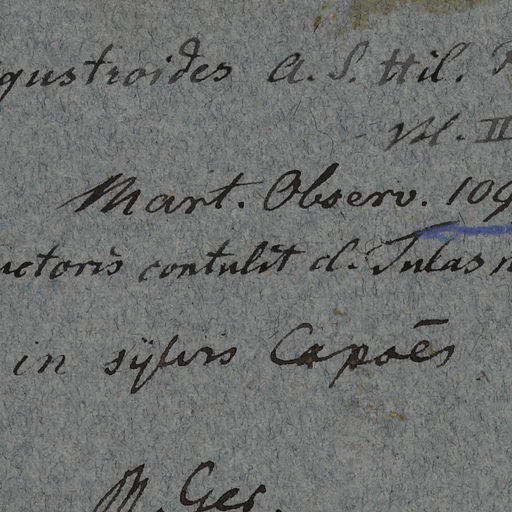 gustroides A. S. Hil.
M. II
Mart. Observ. 109
uctoris contulit cl. Tulasn
in sÿlvis Capoēs
M. Ger.